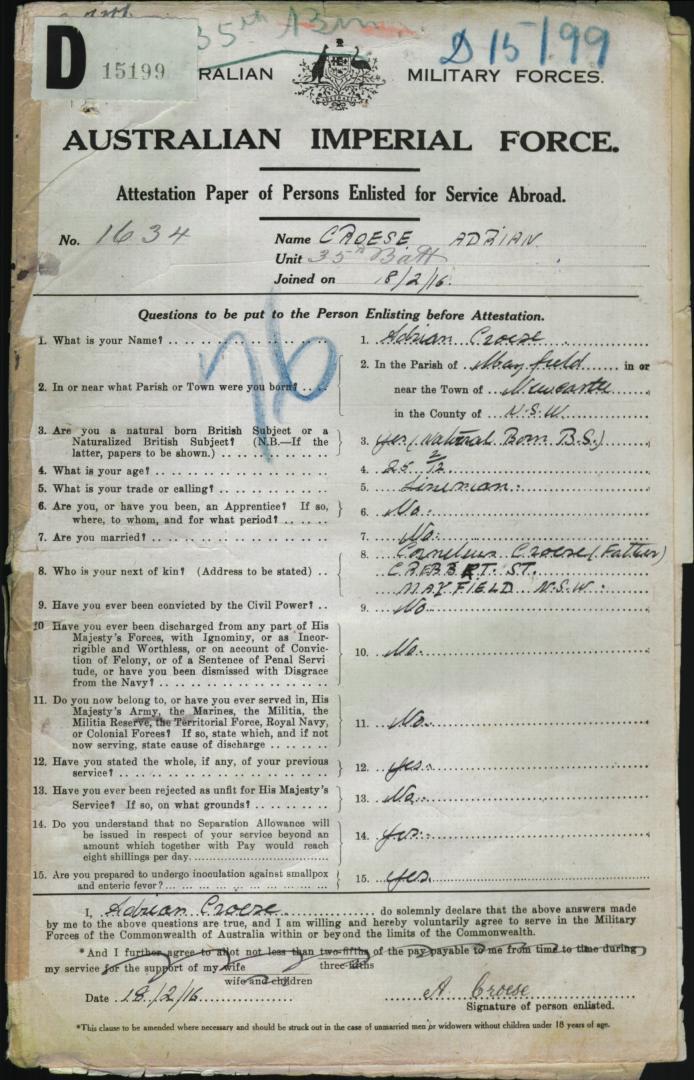 35th A3m
D 15199
D 15199
RALIAN MILITARY FORCES.
AUSTRALIAN IMPERIAL FORCE.
Attestation Paper of Persons Enlisted for Service Abroad.
No. 1634 Name CROESE ADRIAN
Unit 35th Batt
Joined on 18/2/16.
Questions to be put to the Person Enlisting before Attestation.
76
1. What is your Name? 1. Adrian Croese
2. In or near what Parish or Town were you born? 2. In the Parish of Mayfield in or
near the Town of Newcastle
in the County of N.S.W.
3. Are you a natural born British Subject or a
Naturalized British Subject? (N.B.—If the
latter, papers to be shown.) 3. yes (Natural Born B.S.)
4. What is your age? 4. 25 2/12
5. What is your trade or calling? 5. Lineman.
6. Are you, or have you been, an Apprentice? If so,
where, to whom, and for what period? 6. No.
7. Are you married? 7. No.
8. Who is your next of kin? (Address to be stated) 8. Cornelius Croese (Father)
CREBERT. ST.
MAYFIELD N.S.W.
9. Have you ever been convicted by the Civil Power? 9. No
10 Have you ever been discharged from any part of His
Majesty's Forces, with Ignominy, or as Incor-
rigible and Worthless, or on account of Convic-
tion of Felony, or of a Sentence of Penal Servi
tude, or have you been dismissed with Disgrace
from the Navy? 10. No.
11. Do you now belong to, or have you ever served in, His
Majesty's Army, the Marines, the Militia, the
Militia Reserve, the Territorial Force, Royal Navy,
or Colonial Forces? If so, state which, and if not
now serving, state cause of discharge 11. No.
12. Have you stated the whole, if any, of your previous
service? 12. yes.
13. Have you ever been rejected as unfit for His Majesty's
Service? If so, on what grounds? 13. No.
14. Do you understand that no Separation Allowance will
be issued in respect of your service beyond an
amount which together with Pay would reach
eight shillings per day. 14. yes.
15. Are you prepared to undergo inoculation against smallpox
and enteric fever? 15. yes.
I, Adrian Croese do solemnly declare that the above answers made
by me to the above questions are true, and I am willing and hereby voluntarily agree to serve in the Military
Forces of the Commonwealth of Australia within or beyond the limits of the Commonwealth.
*And I further agree to allot not less than two-fifths of the pay payable to me from time to time during
my service for the support of my wife three-fifths
wife and children
Date 18/2/16 A Croese
Signature of person enlisted.
*This clause to be amended where necessary and should be struck out in the case of unmarried men or widowers without children under 18 years of age.